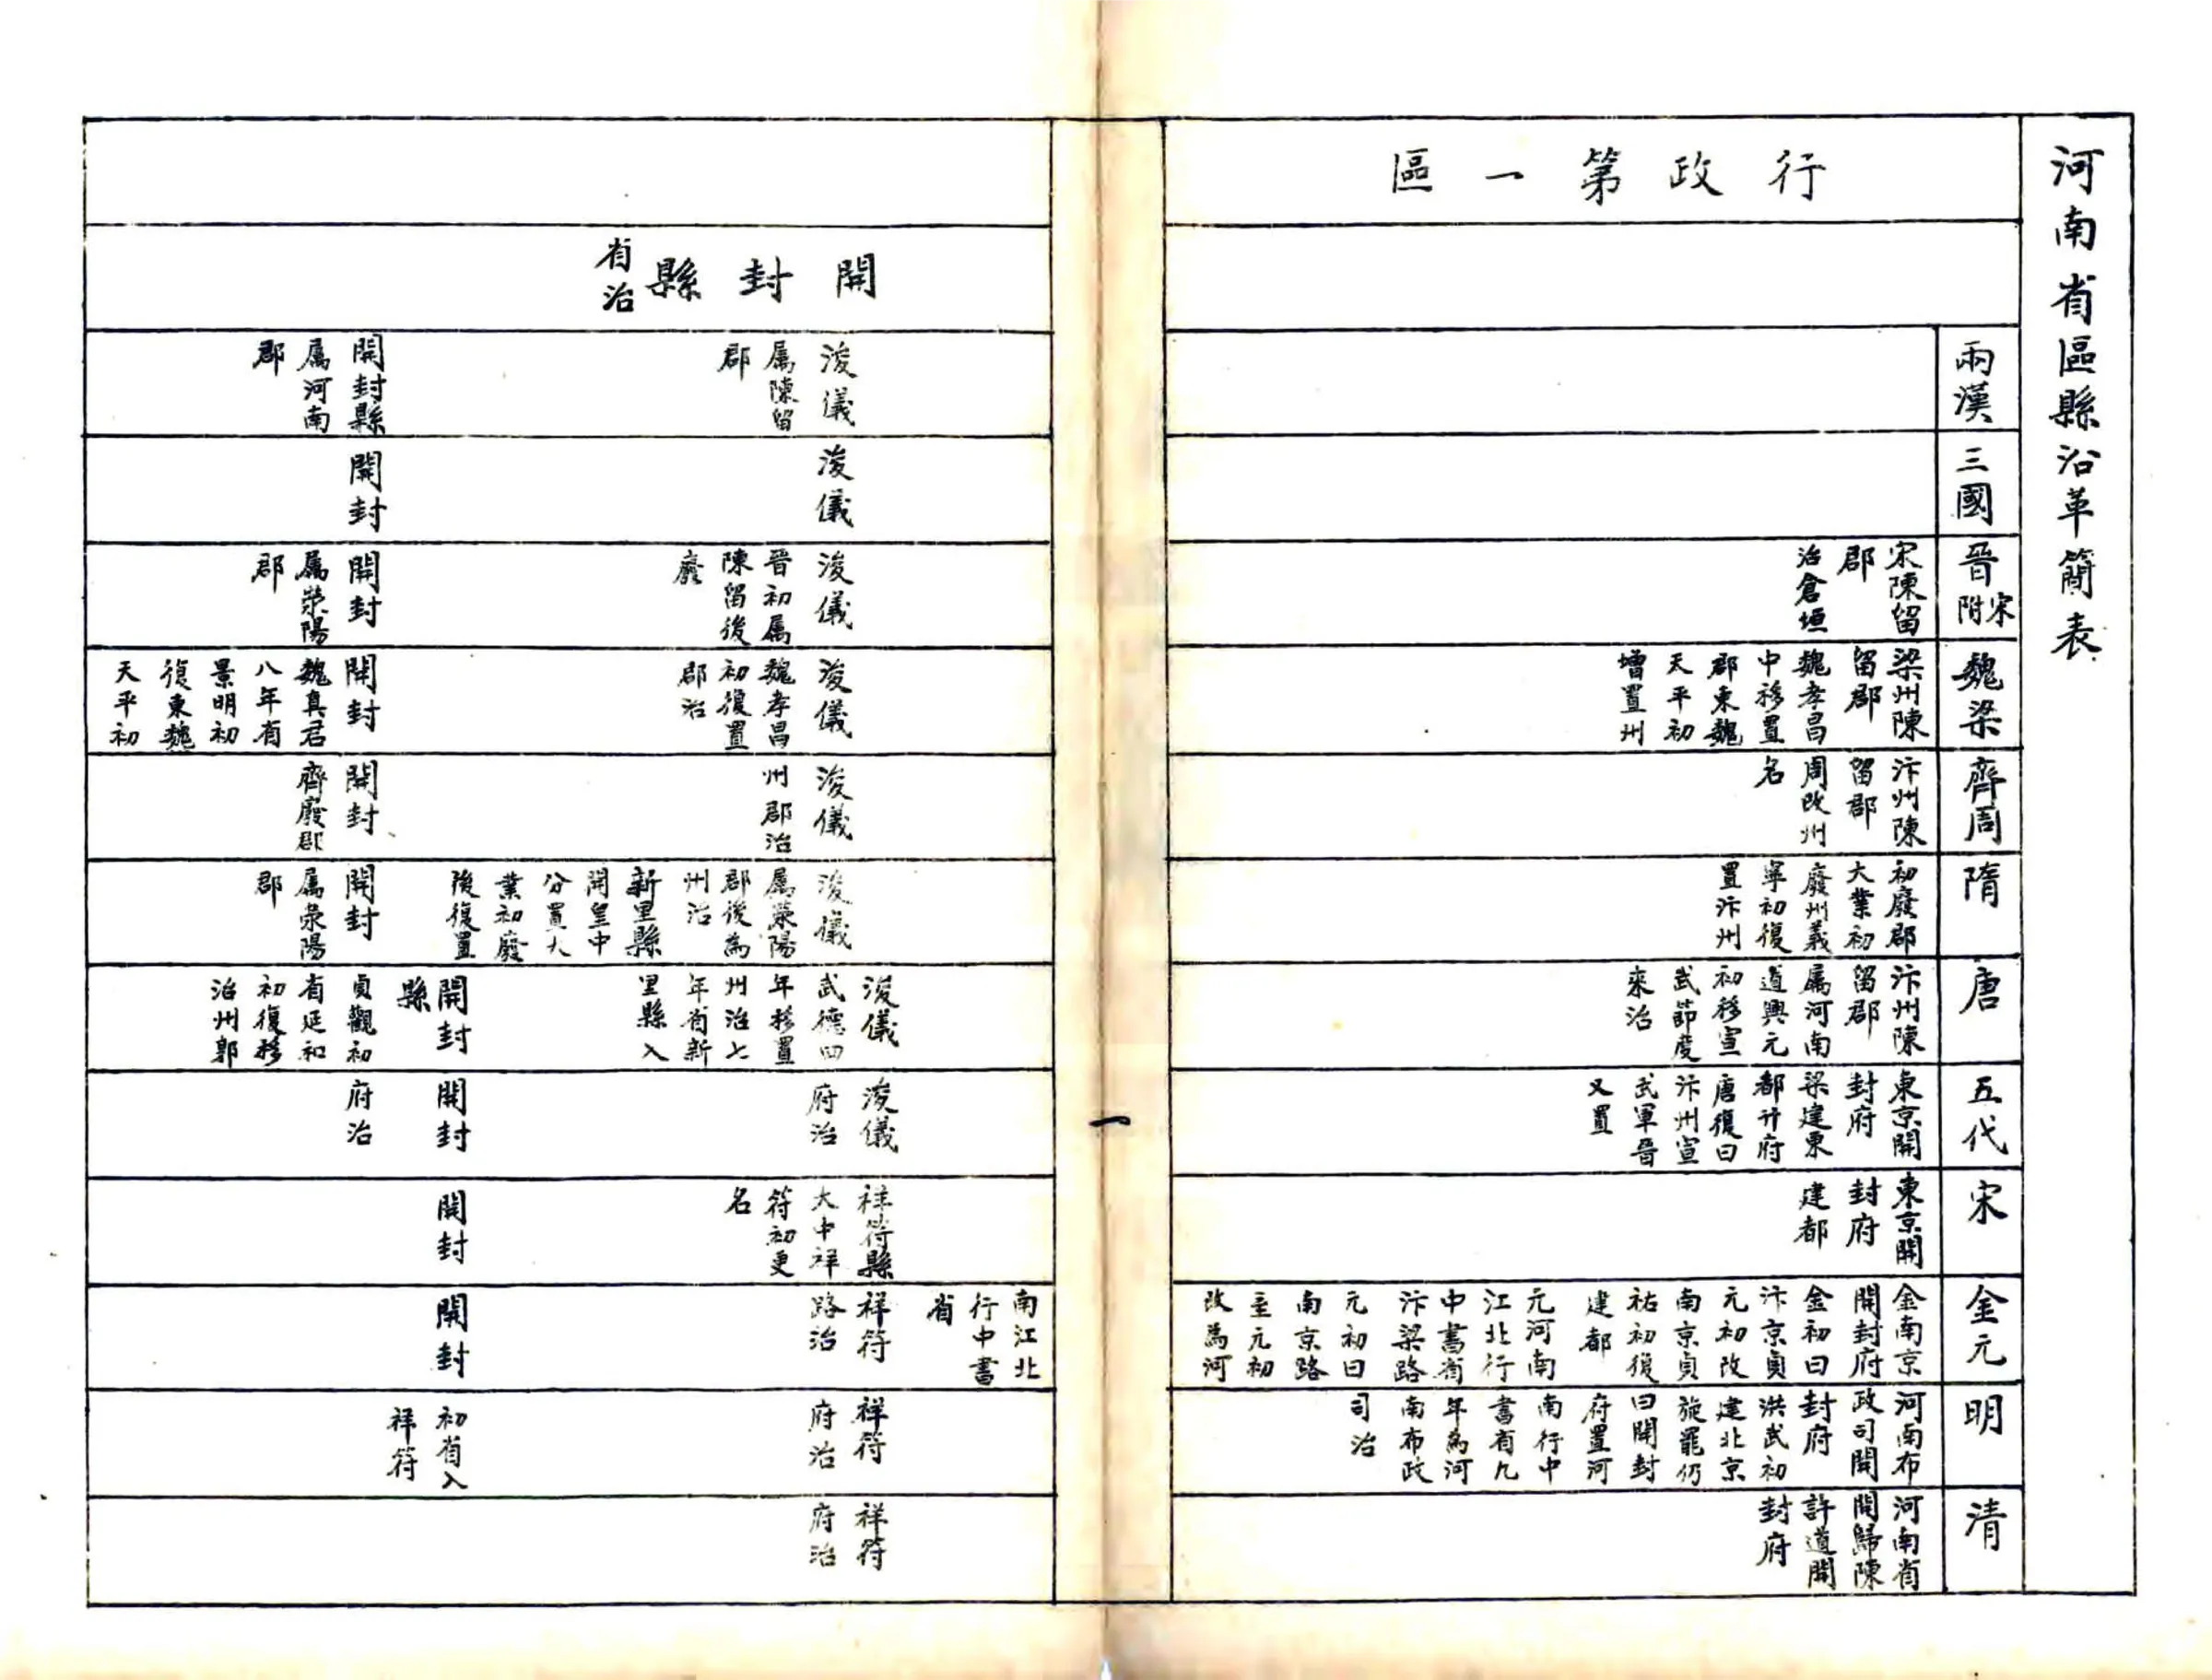 河南省區縣沿革簡表
行政第一區
兩漢
三國
晉
宋附
宋陳留
郡
治倉垣
魏梁
梁州陳
留郡
魏孝昌
中移置
郡東魏
天平初
增置州
齊周
汴州陳
留郡
周改州
名
隋
初廢郡
大業初
廢州義
寧初復
置汴州
唐
汴州陳
留郡
屬河南
道興元
初移宣
武節度
來治
五代
東京開
封府
梁建東
都升府
唐復曰
汴州宣
武軍晉
又置
宋
東京開
封府
建都
金元
金南京
開封府
金初曰
汴京貞
元初改
南京貞
祐初復
建都
元河南
江北行
中書省
汴梁路
元初曰
南京路
至元初
改為河
明
河南布
政司開
封府
洪武初
建北京
旋罷仍
曰開封
府置河
南行中
書省九
年為河
南布政
司治
清
河南省
開歸陳
許道開
封府
一
開封縣
省治
浚儀
属陳留
郡
開封縣
属河南
郡
浚儀
開封
浚儀
晉初属
陳留後
廢
開封
属滎陽
郡
浚儀
魏孝昌
初復置
郡治
開封
魏真君
八年省
景明初
復東魏
天平初
浚儀
州郡治
開封
齊廢郡
浚儀
属滎陽
郡後為
州治
新里縣
開皇中
分置大
業初廢
後復置
開封
属滎陽
郡
浚儀
武德四
年移置
州治七
年省新
里縣入
開封
縣
貞觀初
省延和
初復移
治州郭
浚儀
府治
開封
府治
祥符縣
大中祥
符初更
名
開封
南江北
行中書
省
祥符
路治
開封
祥符
府治
初省入
祥符
祥符
府治